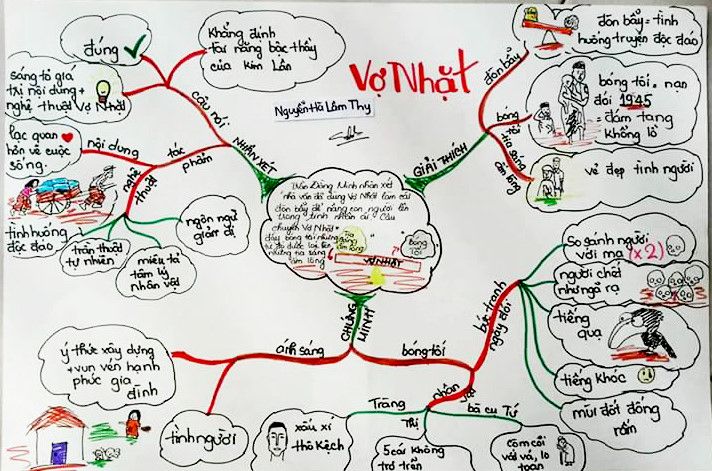 Vợ Nhặt
Nguyễn Hà Lâm Thy
Trần Đăng Ninh nhận xét
nhà văn đã dùng Vợ Nhặt làm cái
đòn bẩy để nâng con người lên
trong tình nhân ái. Câu
chuyện Vợ Nhặt
đầy bóng tối nhưng
từ đó đã lại lên
những tia sáng
ấm lòng
Tia
sáng
ấm lòng
Bóng
tối
VỢ NHẶT
NHẬN XÉT
câu nói
đúng
Khẳng định
tài năng bậc thầy
của Kim Lân
sáng tỏ giá
trị nội dung +
nghệ thuật Vợ Nhặt
tác
phẩm
nội dung
lạc quan
hơn về cuộc
sống.
nghệ
thuật
tình huống
độc đáo
trần thuật
tự nhiên
miêu tả
tâm lý
nhân vật
ngôn ngữ
giản dị
GIẢI THÍCH
đòn bẩy
đòn bẩy = tình
huống truyện độc đáo
bóng
tối
bóng tối = nạn
đói 1945
= đám tang
khổng lồ
tia sáng
ấm lòng
vẻ đẹp tình người
CHỨNG
MINH
ánh sáng
ý thức xây dựng
+ vun vén hạnh
phúc gia
đình
tình người
bóng tối
bức tranh
ngày đói
So sánh người
với ma (x2)
người chết
như ngả rạ
tiếng
quạ
tiếng khóc
mùi đốt đống
rấm
chân
Tràng
xấu xí
thô kệch
Thị
5 cái không
trơ trẽn
bà cụ Tứ